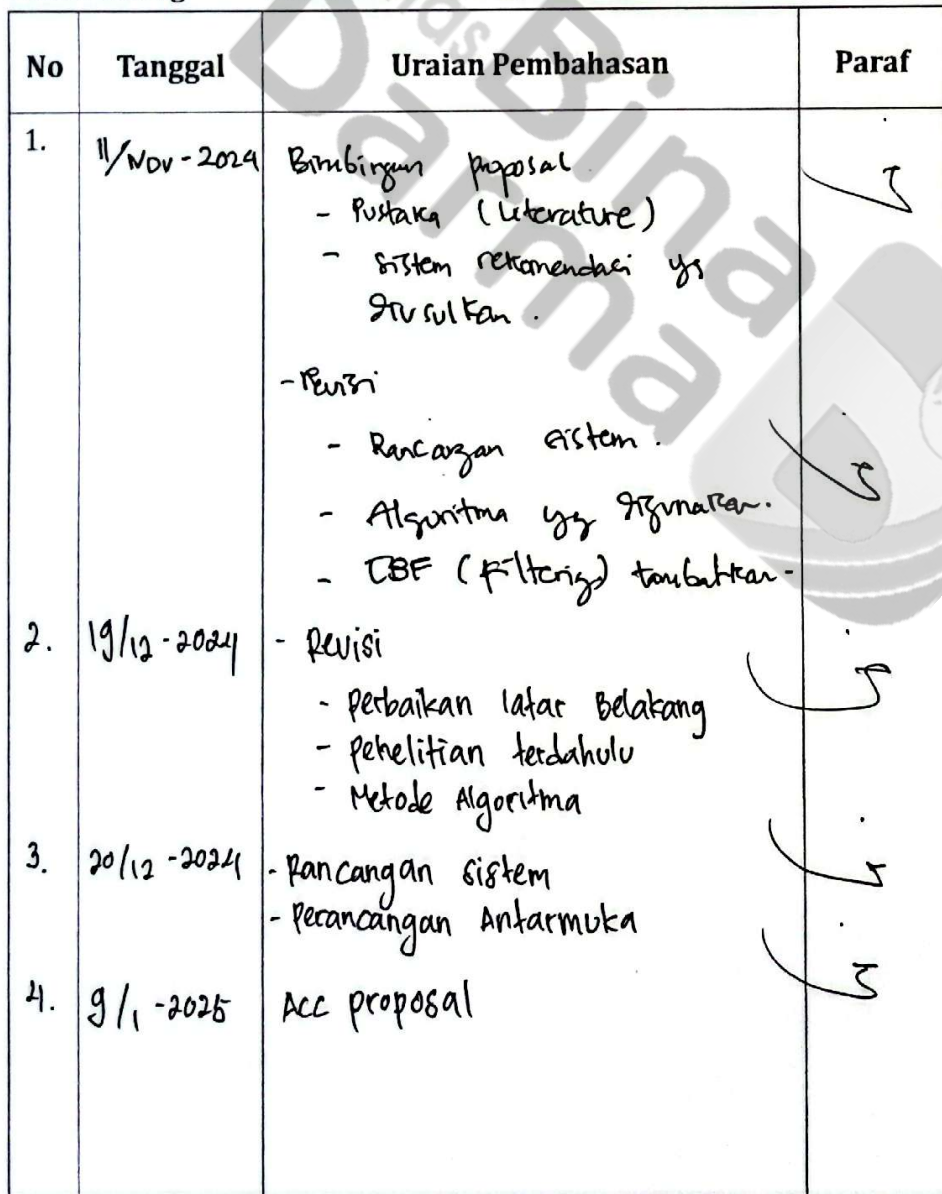 No Tanggal Uraian Pembahasan Paraf
1. 11/Nov-2024 Bimbingan proposal
- Pustaka (Literature)
- Sistem rekomendasi yg
diusulkan.
- Revisi
- Rancangan sistem.
- Algoritma yg digunakan.
- CBF (Filtering) tambahkan-
2. 19/12-2024 - Revisi
- Perbaikan latar Belakang
- Penelitian terdahulu
- Metode Algoritma
3. 20/12-2024 - Rancangan sistem
- Perancangan Antarmuka
4. 9/1-2025 Acc proposal
Bina
Darma